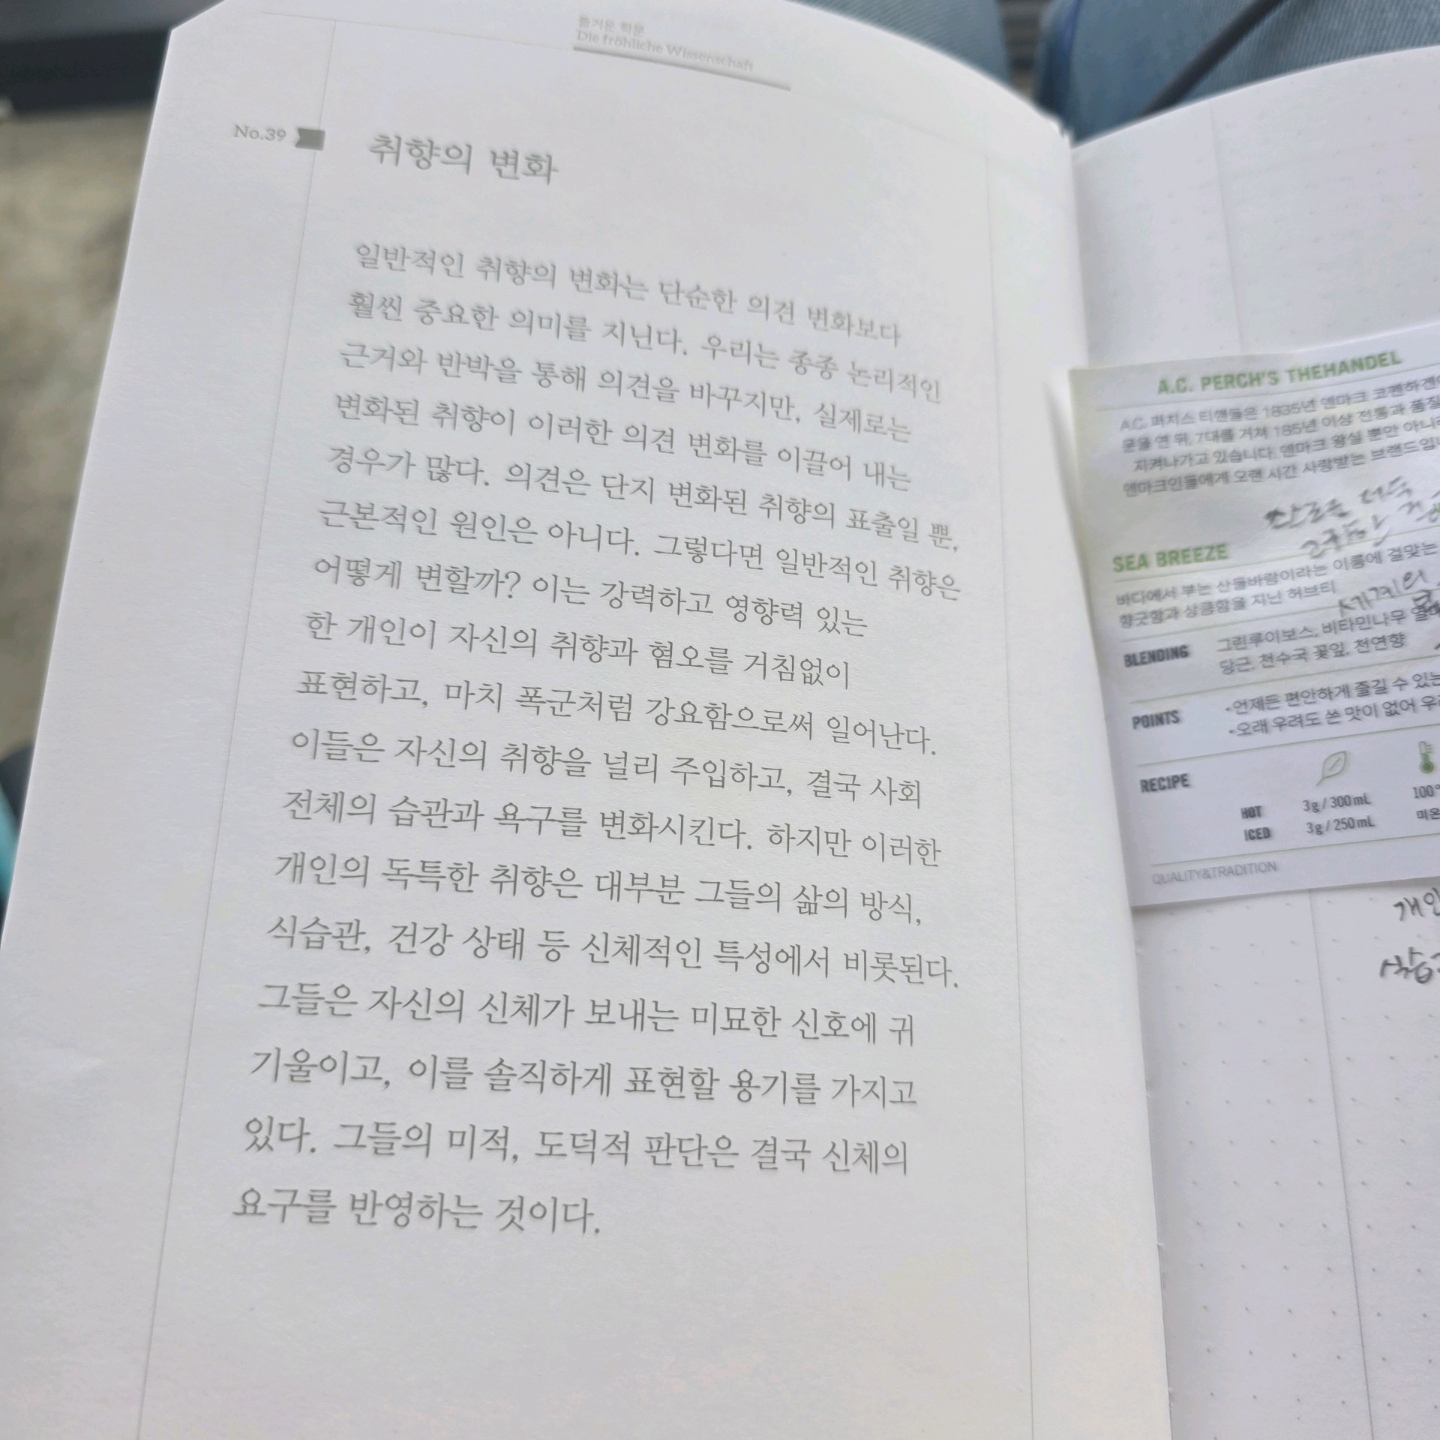 즐거운 학문
Die fröhliche Wissenschaft
No.39
취향의 변화
일반적인 취향의 변화는 단순한 의견 변화보다
훨씬 중요한 의미를 지닌다. 우리는 종종 논리적인
근거와 반박을 통해 의견을 바꾸지만, 실제로는
변화된 취향이 이러한 의견 변화를 이끌어 내는
경우가 많다. 의견은 단지 변화된 취향의 표출일 뿐,
근본적인 원인은 아니다. 그렇다면 일반적인 취향은
어떻게 변할까? 이는 강력하고 영향력 있는
한 개인이 자신의 취향과 혐오를 거침없이
표현하고, 마치 폭군처럼 강요함으로써 일어난다.
이들은 자신의 취향을 널리 주입하고, 결국 사회
전체의 습관과 욕구를 변화시킨다. 하지만 이러한
개인의 독특한 취향은 대부분 그들의 삶의 방식,
식습관, 건강 상태 등 신체적인 특성에서 비롯된다.
그들은 자신의 신체가 보내는 미묘한 신호에 귀
기울이고, 이를 솔직하게 표현할 용기를 가지고
있다. 그들의 미적, 도덕적 판단은 결국 신체의
요구를 반영하는 것이다.
A.C. PERCH'S THEHANDEL
A.C. 퍼치스 티핸들은 1835년 덴마크 코펜하겐에
문을 연 뒤, 7대를 거쳐 185년 이상 전통과 품질
지켜나가고 있습니다. 덴마크 왕실 뿐만 아니라
덴마크인들에게 오랜 시간 사랑받는 브랜드입니
SEA BREEZE
바다에서 부는 산들바람이라는 이름에 걸맞은
향긋함과 상큼함을 지닌 허브티
세계의
BLENDING
그린루이보스, 비타민나무
당근, 천수국 꽃잎, 천연향
POINTS
•언제든 편안하게 즐길 수 있는
•오래 우려도 쓴 맛이 없어
RECIPE
HOT 3g / 300mL 100°
ICED 3g / 250mL 미온
QUALITY&TRADITION
개인